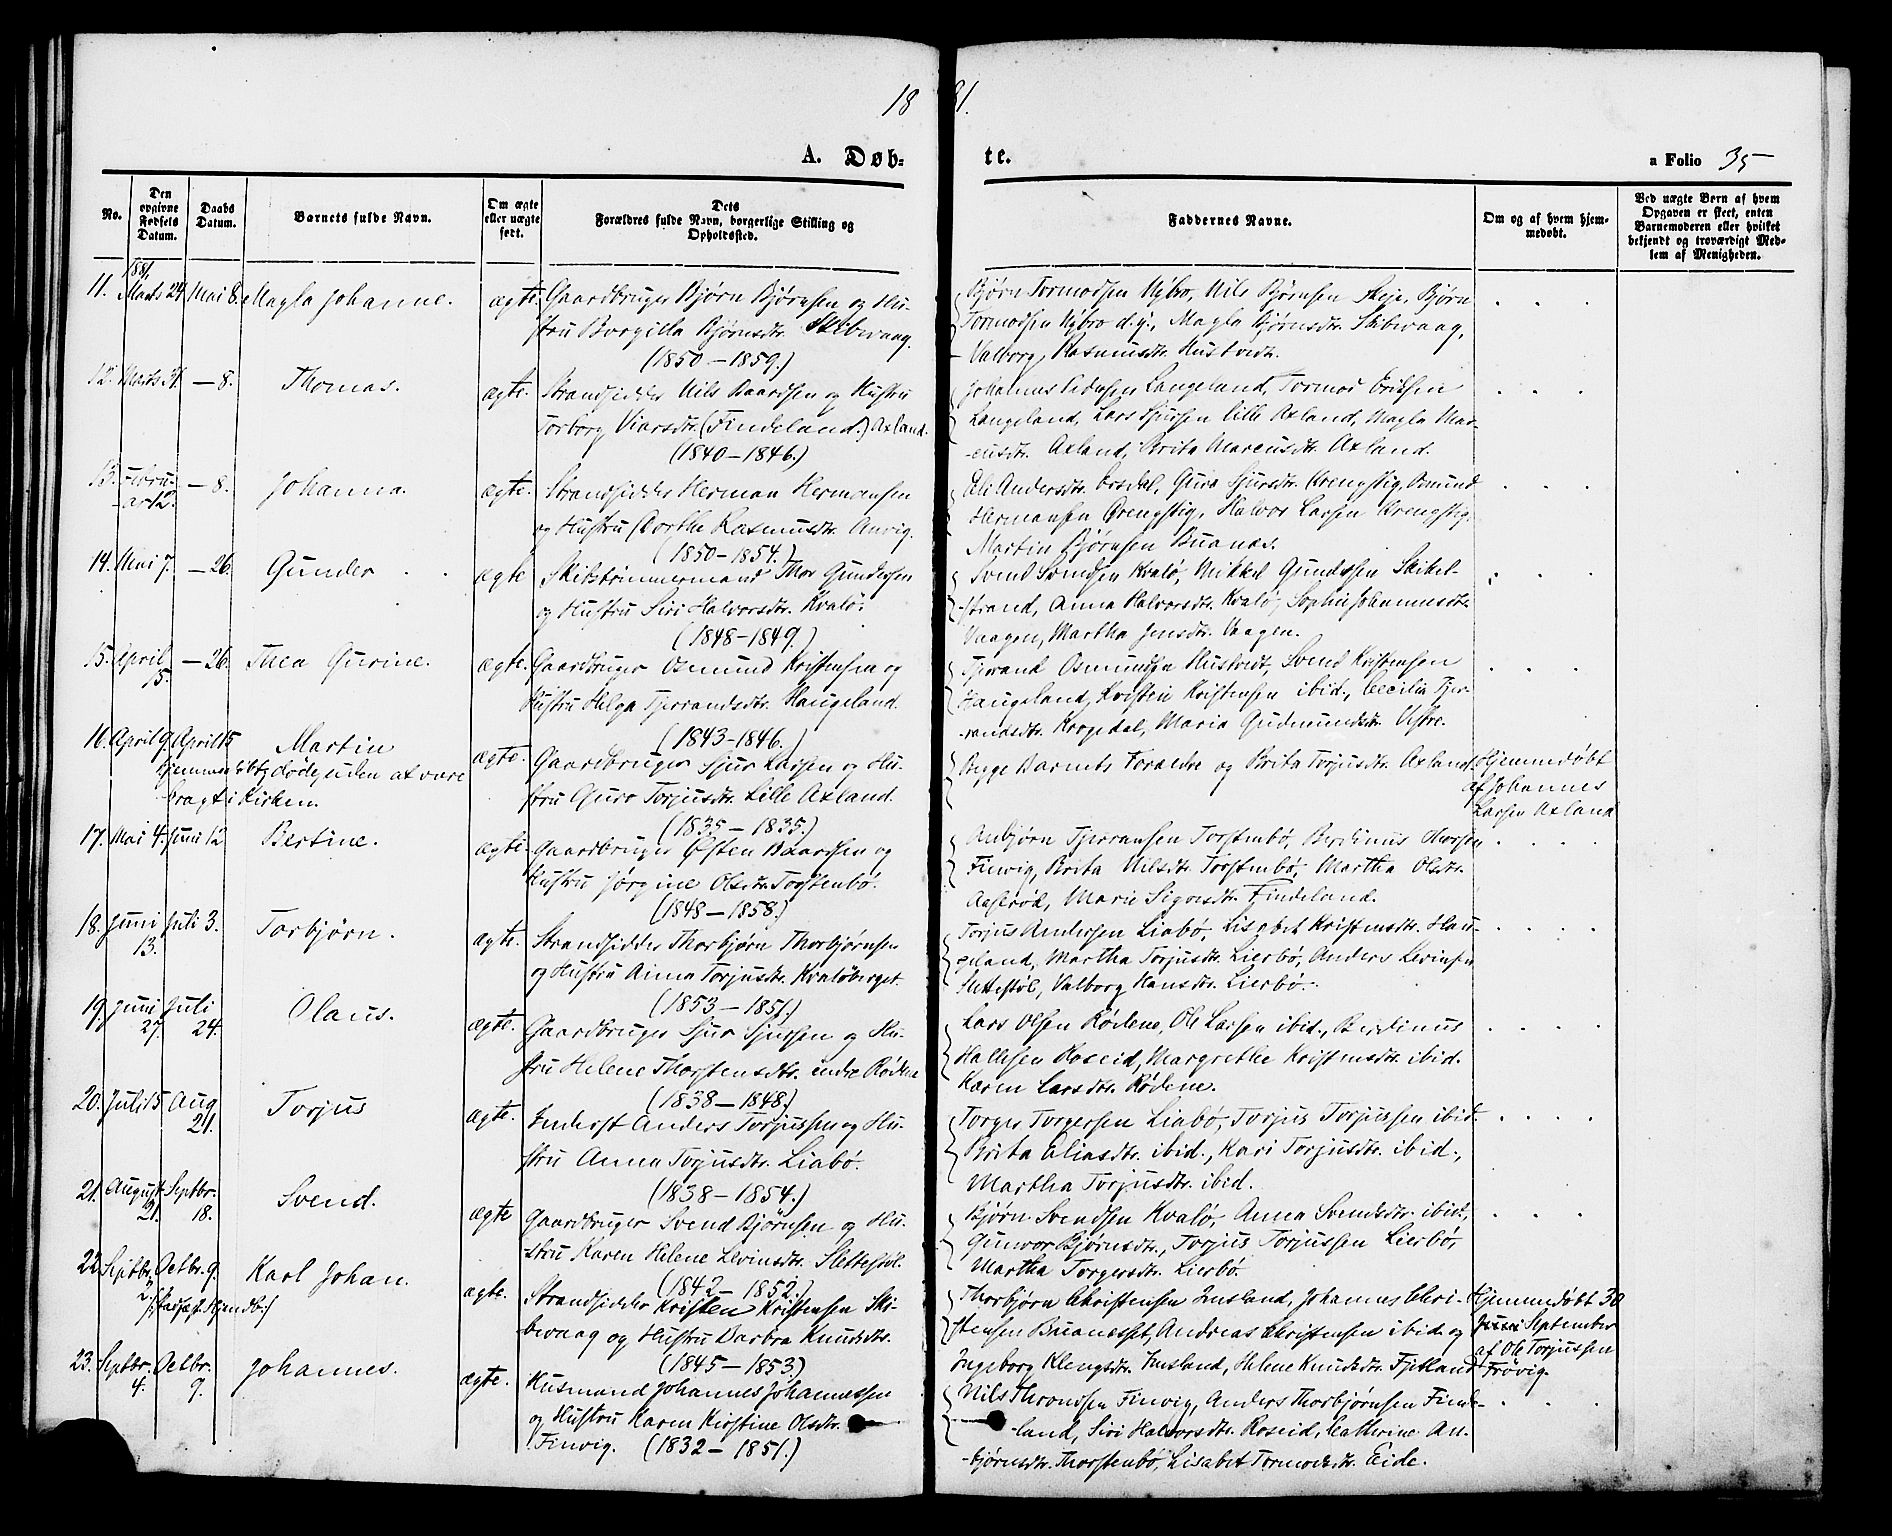 1881.
A. Døbte.
a Folio 35
No.
Den opgivne Fødsels Datum.
Daabs Datum.
Barnets fulde Navn.
Om ægte eller uægte født.
Dets Forældres fulde Navn, borgerlige Stilling og Opholdssted.
Faddernes Navne.
Om og af hvem hjemmedøbt.
Ved uægte Børn af hvem Opgaven er skeet, enten Barnemoderen eller hvilket bekjendt og troværdigt Medlem af Menigheden.
1881.
11. Marts 24 Mai 8. Magla Johanne. ægte. Gaardbruger Bjørn Bjørnsen og Hu-
stru Borgilla Bjørnsdtr. Skibevaag.
(1850–1859.)
Bjørn Tormodsen Nybro, Nils Bjørnsen Skeje, Bjørn
Tormodsen Nybro d.y., Magla Bjørnsdtr. Skibevaag,
Valborg Rasmusdtr. Hustvedt.
12. Marts 31. — 8. Thomas. ægte. Strandsidder Nils Baardsen og Hustru
Torborg Viarsdtr. (Findeland.) Axland.
(1840–1846.)
Johannes Langeland, Tormod Eriksen
Langeland, Lars Sjursen lille Axland, Magla Mar-
cusdtr. Axland, Brita Marcusdtr. Axland.
13. Febru-
ar 12. — 8. Johanna. ægte. Strandsidder Herman Hermansen
og Hustru Dorthe Rasmusdtr. Anvig.
(1850–1854.)
Eli Andersdtr. Ersdal, Guro Sjursdtr. Krengstig, Osmund
Hermansen Krengstig, Halvor Larsen Krengstig,
Martin Bjørnsen Buanæs.
14. Mai 7. — 26. Gunder. ægte Skibstømmermand Thor Gundersen
og Hustru Siri Halvorsdtr. Kvalø.
(1848–1849.)
Svend Svendsen Kvalø, Mikkel Gundersen Skibel-
strand, Anna Halvorsdtr. Kvalø, Sophie Johannesdtr.
Vaagen, Martha Jensdtr. Vaagen.
15. April
15. — 26. Thea Gurine. ægte. Gaardbruger Osmund Kristensen og
Hustru Helga Tjerrandsdtr. Haugeland.
(1843–1846.)
Tjerand Osmundsen Hustvedt, Svend Kristensen
Haugeland, Kristen Kristensen ibid., Cecilia Tjer-
randsdtr. Krogedal, Maria Gudmundsdtr. Vestre.
16. April 9. April 15 Martin
hjemmedøbt, døde uden at være
bragt i Kirken.
ægte. Gaardbruger Sjur Larsen og Hu-
stru Guro Torjusdtr. Lille Axland.
(1835–1835.)
Begge Barnets Forældre og Brita Torjusdtr. Axland.
Hjemmedøbt
af Johannes
Larsen Axland
17. Mai 4. Juni 12 Bertine. ægte. Gaardbruger Østen Baardsen og
Hustru Jørgine Olsdtr. Torstenbø.
(1848–1858.)
Anbjørn Tjerransen Torstenbø, Berdinus Thorsen
Finvig, Brita Nilsdtr. Torstenbø, Martha Olsdtr.
Aastrød, Marie Sigvesdtr. Findeland.
18. Juni
13. Juli 3. Torbjørn. ægte. Strandsidder Thorbjørn Thorbjørnsen
og Hustru Anna Torjusdtr. Kvaløberget.
(1853–1851.)
Torjus Andersen Liabø, Lisabet Kristensdtr. Hau-
geland, Martha Torjusdtr. Lierbø, Anders Levinsen
Slettestøl, Valborg Hansdtr. Lierbø.
19. Juni
27. Juli
24. Olaus. ægte. Gaardbruger Sjur Sjursen og Hu-
stru Helene Thorstensdtr. indre Rødene
(1838–1848.)
Lars Olsen Rødene, Ole Larsen ibid., Berdinus
Hallesen Roseid, Margrethe Kristensdtr. ibid.
Karen Larsdtr. Rødene.
20. Juli 15 Aug
21. Torjus ægte. Inderst Anders Torjussen og Hu-
stru Anna Torjusdtr. Liabø.
(1838–1854.)
Torger Torgersen Liabø, Torjus Torjussen ibid.
Brita Eliasdtr. ibid., Kari Torjusdtr. ibid.,
Martha Torjusdtr. ibid.
21. August
21. Septbr.
18. Svend. ægte Gaardbruger Svend Bjørnsen og Hu-
stru Karen Helene Levinsdtr. Slettestøl.
(1842–1852.)
Bjørn Svendsen Kvalø, Anna Svendsdtr. ibid.,
Gunvor Bjørnsdtr., Torjus Torjussen Lierbø,
Martha Torgersdtr. Lierbø.
22. Septbr.
2. Octbr. 9. Karl Johan. ægte. Strandsidder Kristen Kristensen Ski-
bevaag og Hustru Barbra Knudsdtr.
(1845–1853)
Thorbjørn Christensen Imsland, Johannes Chri-
stensen Buanesset, Andreas Christensen ibid. og
Ingeborg Klengsdtr. Imsland, Helene Knudsdtr. Fjetland
Hjemmedøbt 30
Juni September
af Ole Torjussen
Frøvig.
23. Septbr.
4. Octbr.
9. Johannes. ægte. Husmand Johannes Johannessen
og Hustru Karen Kirstine Olsdtr.
Finvig. (1832–1851.)
Nils Thronsen Finvig, Anders Thorbjørnsen Finde-
land, Siri Halvorsdtr. Roseid, Cathrine An-
bjørnsdtr. Thorstenbø, Lisabet Tormodsdtr. Eide.